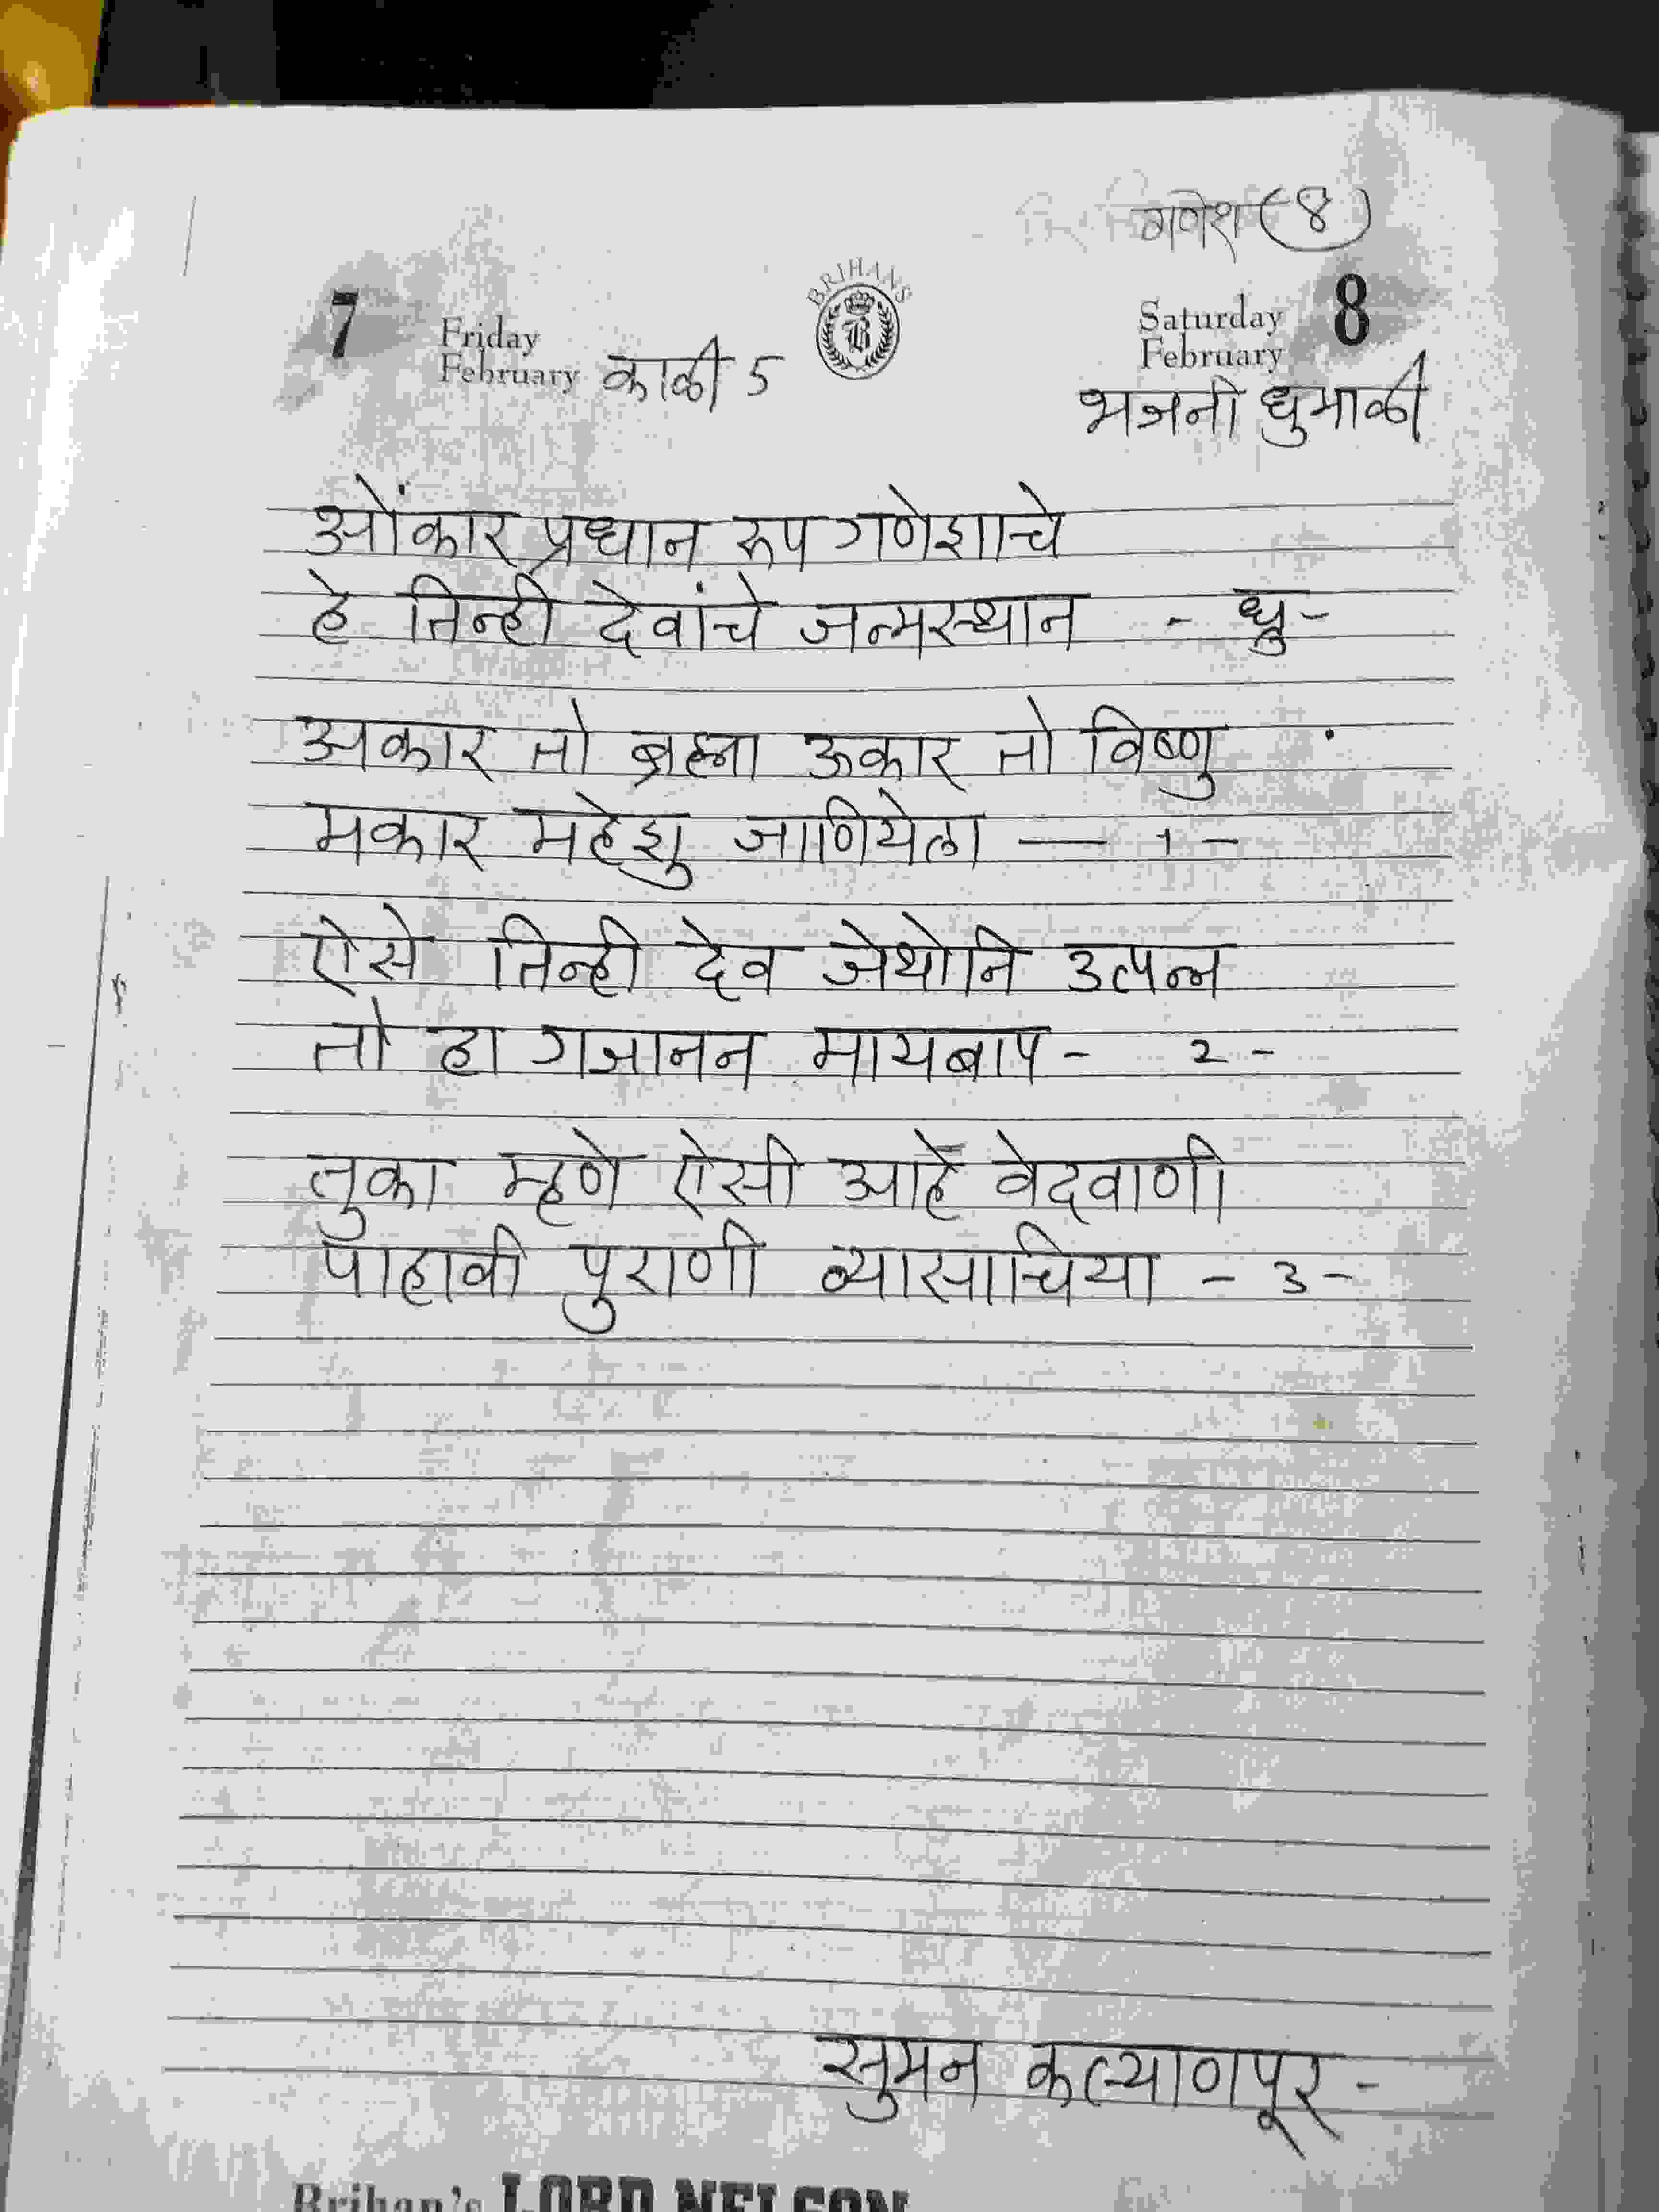 गणेश (४)
7 Friday February
BRIHANS
B
Saturday February 8
काळी 5
भजनी धुमाळी
ओंकार प्रधान रुप गणेशाचे
हे तिन्ही देवांचे जन्मस्थान - ध्रु-
अकार तो ब्रह्मा ऊकार तो विष्णु
मकार महेशु जाणियेला — १ -
ऐसे तिन्ही देव जेथोनि उत्पन्न
तो हा गजानन मायबाप - २ -
तुका म्हणे ऐसी आहे वेदवाणी
पाहावी पुराणी व्यासाचिया - ३ -
सुमन कल्याणपूर -
Brihan's LORD NELSON